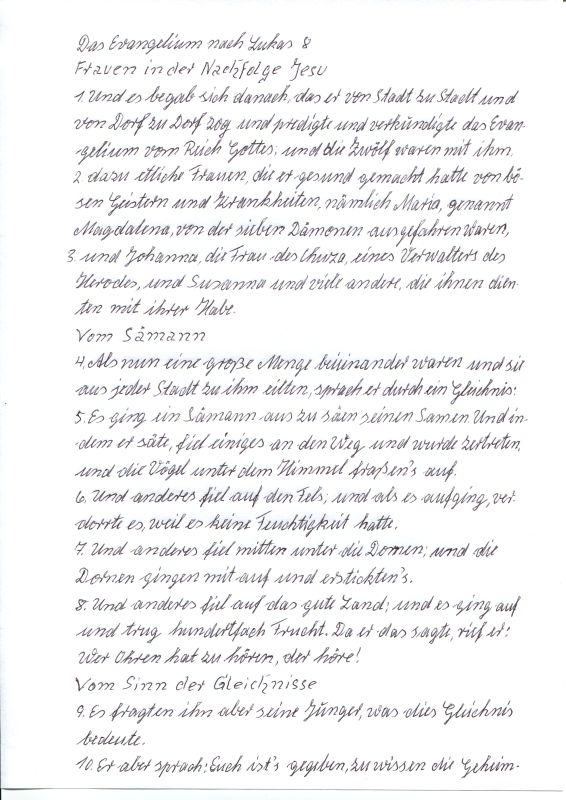 Das Evangelium nach Lukas 8
Frauen in der Nachfolge Jesu
1. Und es begab sich danach, das er von Stadt zu Stadt und
von Dorf zu Dorf zog und predigte und verkündigte das Evan-
gelium vom Reich Gottes; und die Zwölf waren mit ihm.
2. dazu etliche Frauen, die er gesund gemacht hatte von bö-
sen Geistern und Krankheiten, nämlich Maria, genannt
Magdalena, von der sieben Dämonen ausgefahren waren,
3. und Johanna, die Frau des Chuza, eines Verwalters des
Herodes, und Susanna und viele andere, die ihnen dien-
ten mit ihrer Habe.
Vom Sämann
4. Als nun eine große Menge beieinander waren und sie
aus jeder Stadt zu ihm eilten, sprach er durch ein Gleichnis:
5. Es ging ein Sämann aus zu säen seinen Samen. Und in-
dem er säte, fiel einiges an den Weg und wurde zertreten,
und die Vögel unter dem Himmel fraßen's auf.
6. Und anderes fiel auf den Fels; und als es aufging, ver-
dorrte es, weil es keine Feuchtigkeit hatte.
7. Und anderes fiel mitten unter die Dornen; und die
Dornen gingen mit auf und erstickten's.
8. Und anderes fiel auf das gute Land; und es ging auf
und trug hundertfach Frucht. Da er das sagte, rief er:
Wer Ohren hat zu hören, der höre!
Vom Sinn der Gleichnisse
9. Es fragten ihn aber seine Jünger, was dies Gleichnis
bedeute.
10. Er aber sprach: Euch ist's gegeben, zu wissen die Geheim-